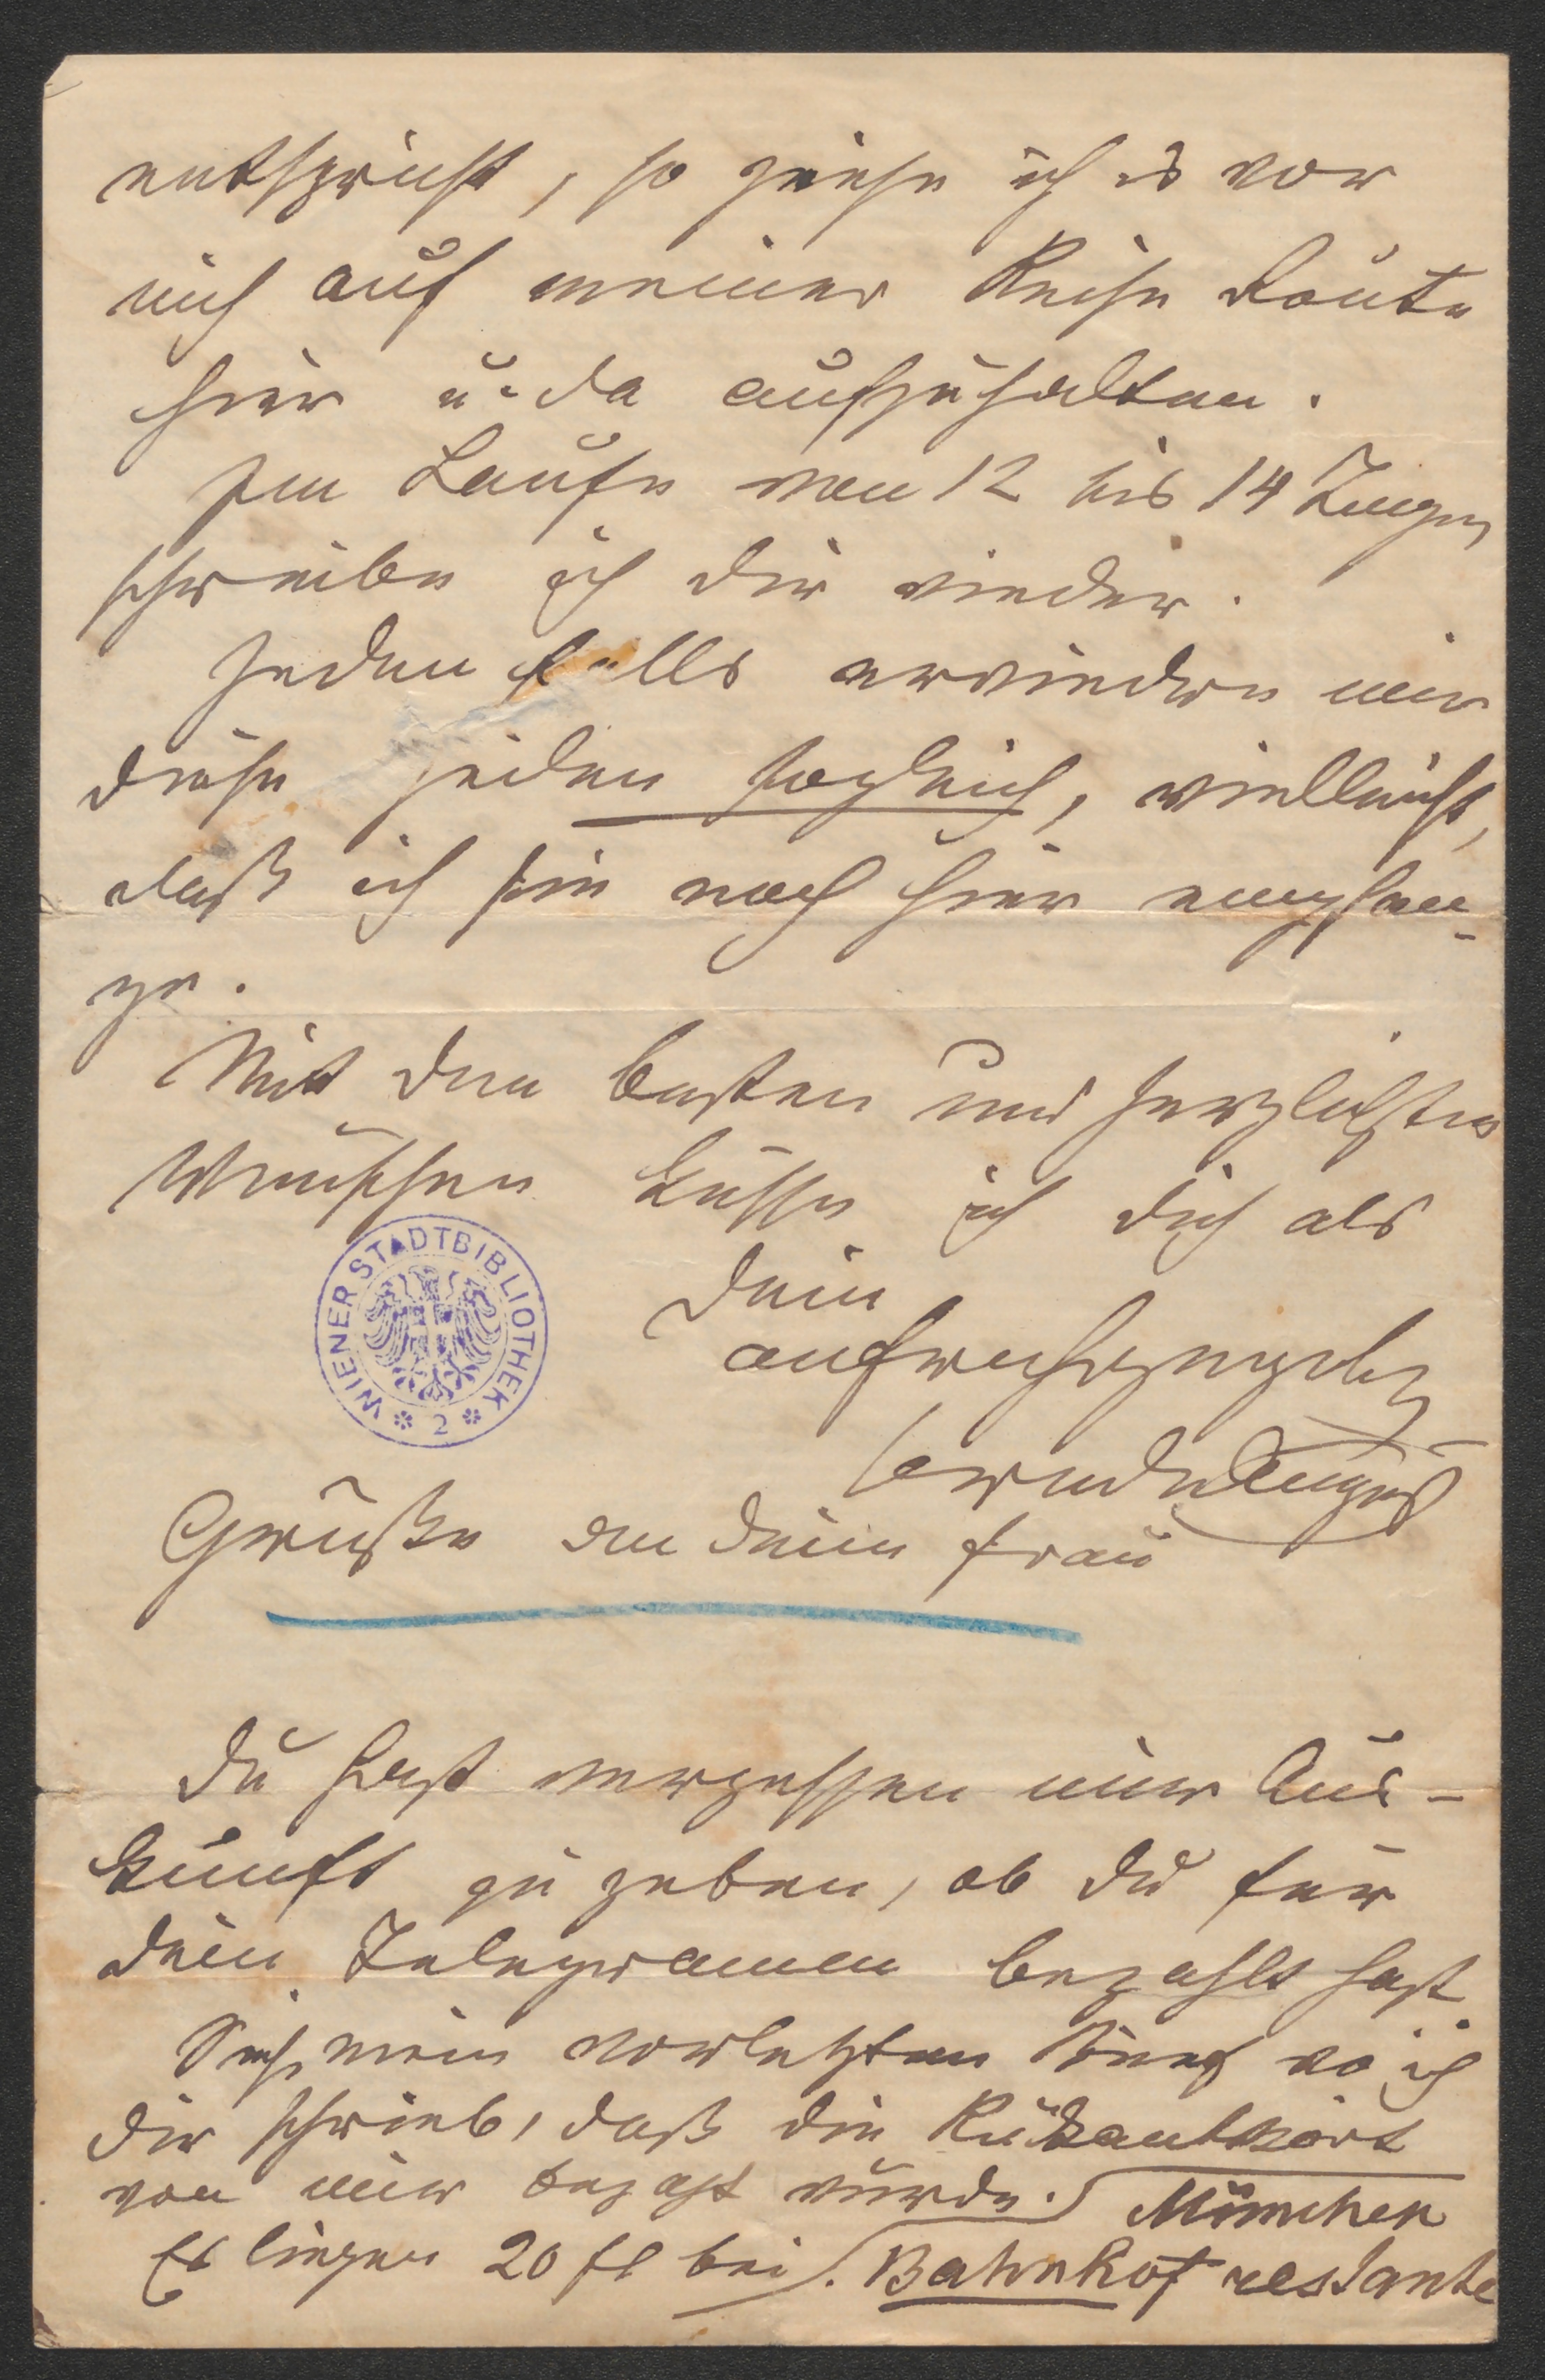 entspricht, so ziehe ich es vor
mich auf meiner Reise Route
hier u. da aufzuhalten.
Im Laufe von 12 bis 14 Tagen
schreibe ich dir wieder.
Jeden falls erwiedere mir
diese Zeilen sogleich, vielleicht,
daß ich sie noch hier empfan-
ge.
Mit den besten und herzlichsten
Wünschen küsse ich dich als
dein
aufrichtiger
Bruder
Grüße an deine Frau
WIENER STADTBIBLIOTHEK
2
Du hast vergessen mir Aus-
kunft zu geben, ob du für
dein Telegramm bezahlt hast.
Sieh mein vorletzten Brief wo ich
dir schrieb, daß die Rückantwort
von mir bezahlt wurde.
München
Es liegen 20 fl bei. Bahnhof restante